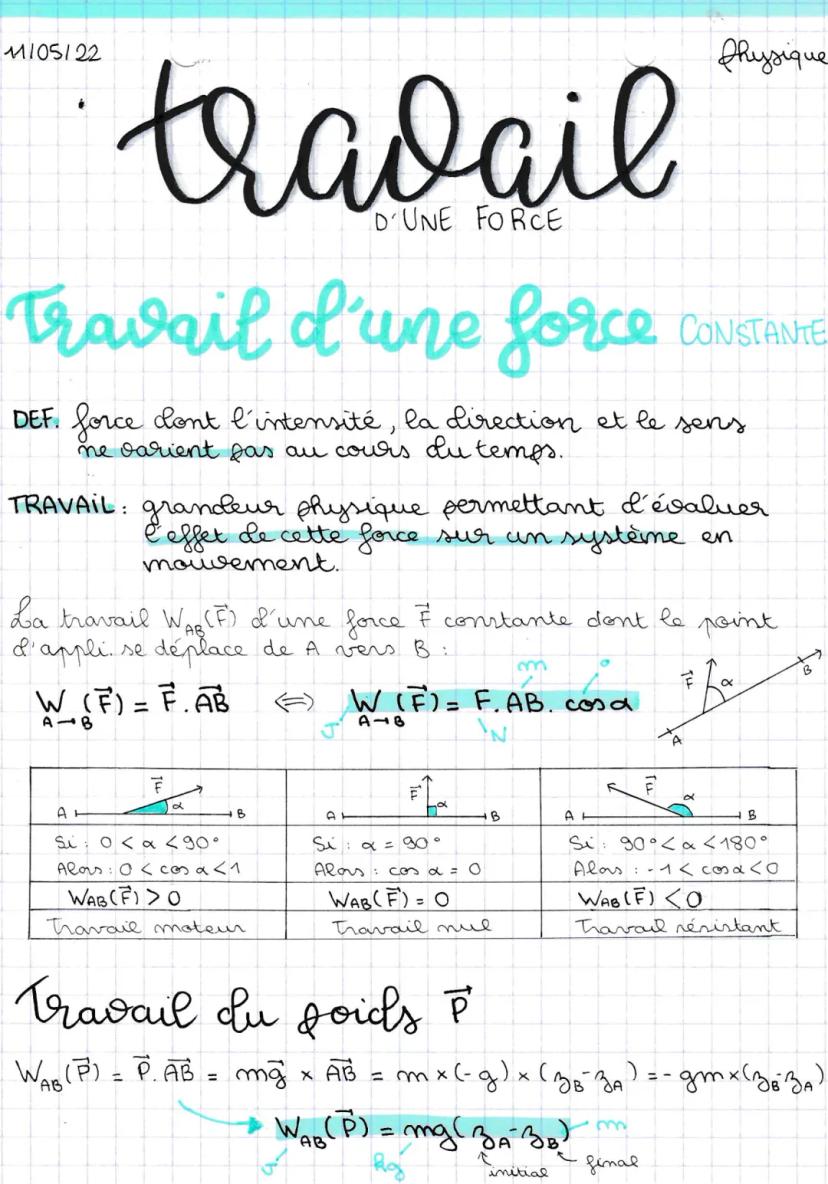 11/05/22
Physique
travail
D'UNE FORCE
Travail d'une force CONSTANTE
DEF. force dont l'intensité, la direction et le sens
ne varient pas au cours du temps.
TRAVAIL : grandeur physique permettant d'évaluer
l'effet de cette force sur un système en
mouvement.
La travail W_AB(F⃗) d'une force F⃗ constante dont le point
d'appli. se déplace de A vers B :
W_A→B(F⃗) = F⃗.AB⃗ ⟺ W_A→B(F⃗) = F.AB.cosα
J N m °
F⃗ α A B
F⃗ α A B
F⃗ α A B
F⃗ α A B
Si : 0 < α < 90° Si : α = 90° Si : 90° < α < 180°
Alors : 0 < cos α < 1 Alors : cos α = 0 Alors : -1 < cosα < 0
WAB(F⃗) > 0 WAB(F⃗) = 0 WAB(F⃗) < 0
Travail moteur Travail nul Travail résistant
Travail du poids P⃗
W_AB(P⃗) = P⃗.AB⃗ = mg⃗ × AB⃗ = m×(-g)×(z_B-z_A) = -gm×(z_B-z_A)
W_AB(P⃗) = mg(z_A-z_B) m
J kg initial final